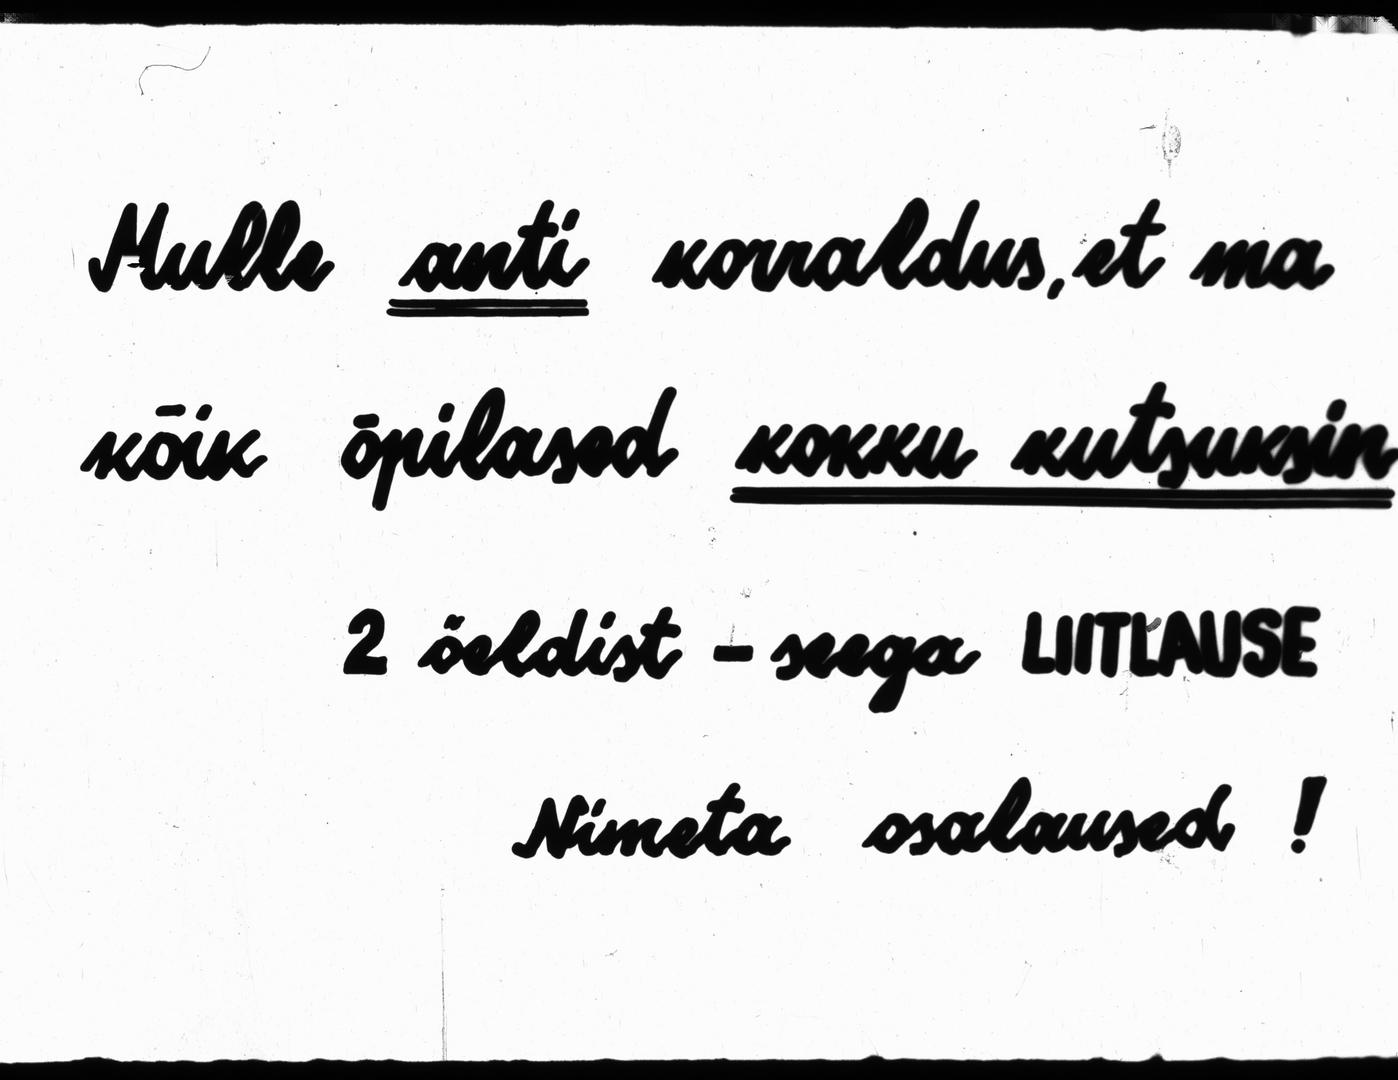 Mulle anti korraldus, et ma
kõik õpilased kokku kutsuksin
2 öeldist - seega LIITLAUSE
Nimeta osalaused !